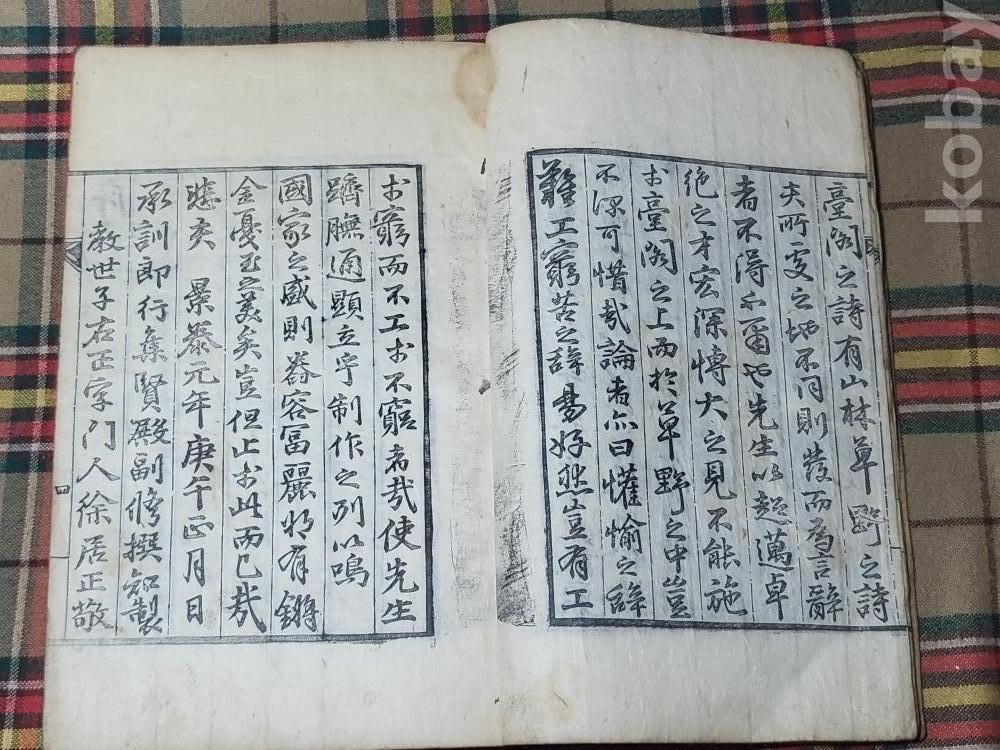 臺閣之詩有山林草野之詩
夫所處之地不同則發而為言辭
者不得不爾也先生以超邁卓
絶之才宏深博大之見不能施
於臺閣之上而於草野之中豈
不深可惜哉論者亦曰懽愉之辭
難工窮苦之辭易好然豈有工
於窮而不工於不窮者哉使先生
躋膴通顯立乎制作之列以鳴
國家之盛則舂容富麗將有鏘
金戛玉之美矣豈但止於此而已哉
悲夫 景泰元年庚午正月日
承訓郎行集賢殿副修撰知製
教世子右正字門人徐居正敬
四
kobay